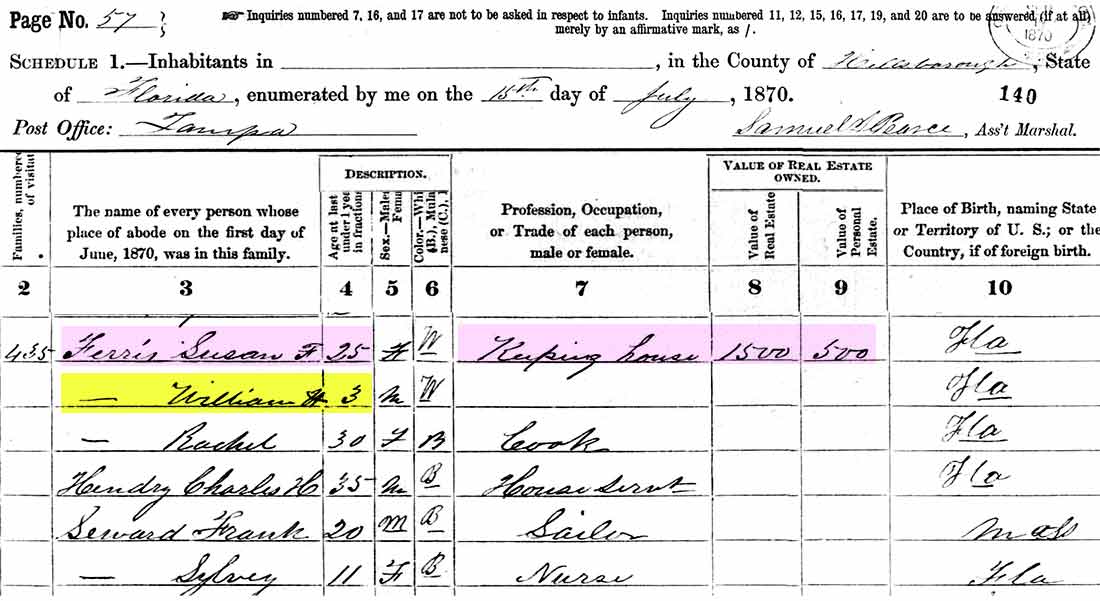 Page No. 57 } ☞ Inquiries numbered 7, 16, and 17 are not to be asked in respect to infants. Inquiries numbered 11, 12, 15, 16, 17, 19, and 20 are to be answered (if at all)
merely by an affirmative mark, as /.
1870
SCHEDULE 1.—Inhabitants in , in the County of Hillsborough, State
of Florida, enumerated by me on the 15th day of July, 1870. 140
Post Office: Tampa Samuel Pearce, Ass't Marshal.
Families, numbered
of visitat
The name of every person whose
place of abode on the first day of
June, 1870, was in this family.
DESCRIPTION.
Age at last
under 1 yea
in fractions
Sex.—Male
Fema
Color.—Whi
(B.), Mula
nese (C.), I
Profession, Occupation,
or Trade of each person,
male or female.
VALUE OF REAL ESTATE
OWNED.
Value of
Real Estate
Value of
Personal
Estate.
Place of Birth, naming State
or Territory of U. S.; or the
Country, if of foreign birth.
2 3 4 5 6 7 8 9 10
435 Ferris Susan F 25 F W Keeping house 1500 500 Fla
— William H 3 M W Fla
— Rachel 30 F B Cook Fla
Hendry Charles H 35 M B House Servt Fla
Seward Frank 20 M B Sailor Mass
— Sylvey 11 F B Nurse Fla